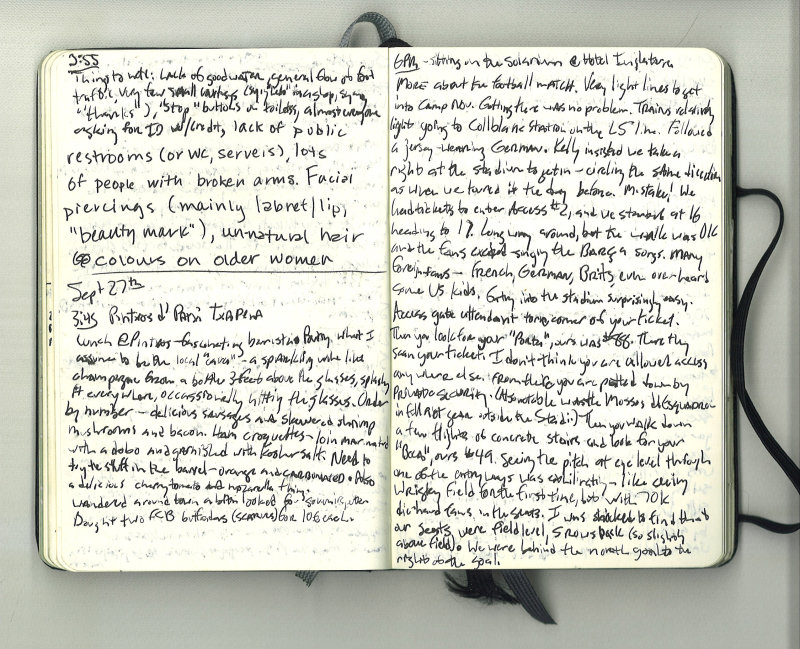 3:55
Things to note: Lack of good water, general flow of foot
traffic, very few small
"thanks"), "stop" buttons on toilets, almost everyone
asking for ID w/credit, lack of public
restrooms (or WC, serveis), lots
of people with broken arms. Facial
piercings (mainly labret/lip,
"beauty mark"), unnatural hair
colours on older women
Sept 27th
3:45 Pintxos d' Txapela
Lunch @ Pintxos - fascinating pouring what I
assume to be the local "cava" - a sparkling wine like
champagne from a bottle 3 feet above the glasses, splashing
it everywhere, occassionally hitting the glasses. Order
by number - delicious sausages and skewered shrimp
mushrooms and bacon. Ham croquettes - loin marinated
with adobo and garnished with kosher salt. Need to
try the stuff in the barrel - orange and carbonated. Also
a delicious cherry tomato and mozzarella thing.
wandered around town a bit looked for souvenirs, then
Bought two FCB (scarves) for 10€ each.
6PM - sitting on the Solarium @ Hotel Inglaterra
MORE about the football match. Very light lines to get
into Camp Nou. Getting there was no problem. Trains relatively
light going to Collblanc Station on the L5 line. Followed
a jersey-wearing German. Kelly insisted we take a
right at the stadium to get in - circling the same direction
as when we toured it the day before. Mistake! We
had tickets to enter Access #2, and we started at 16
heading to 17. Long way around, but the walk was OK
and the fans singing the Barça songs. Many
foreign fans - French, German, Brits, even overheard
some US kids. Going into the stadium surprisingly easy.
Access gate attendant tore corner of your ticket.
Then you look for your "Porta", ours was #88. There they
scan your ticket. I don't think you are allowed access
anywhere else. From there you are patted down by
PRIVATE SECURITY. (Also notable was the Mossos d'Esquadra
in full riot gear outside the Stadi) Then you walk down
a few flights of concrete stairs and look for your
"Boca", ours #49. Seeing the pitch at eye level through
one of the entryways was exhilirating - like seeing
Wrigley Field for the first time, but with 70K
die hard fans, in the seats. I was shocked to find that
our seats were field level, 5 rows back (so slightly
above field). We were behind the north goal to the
right of the goal.